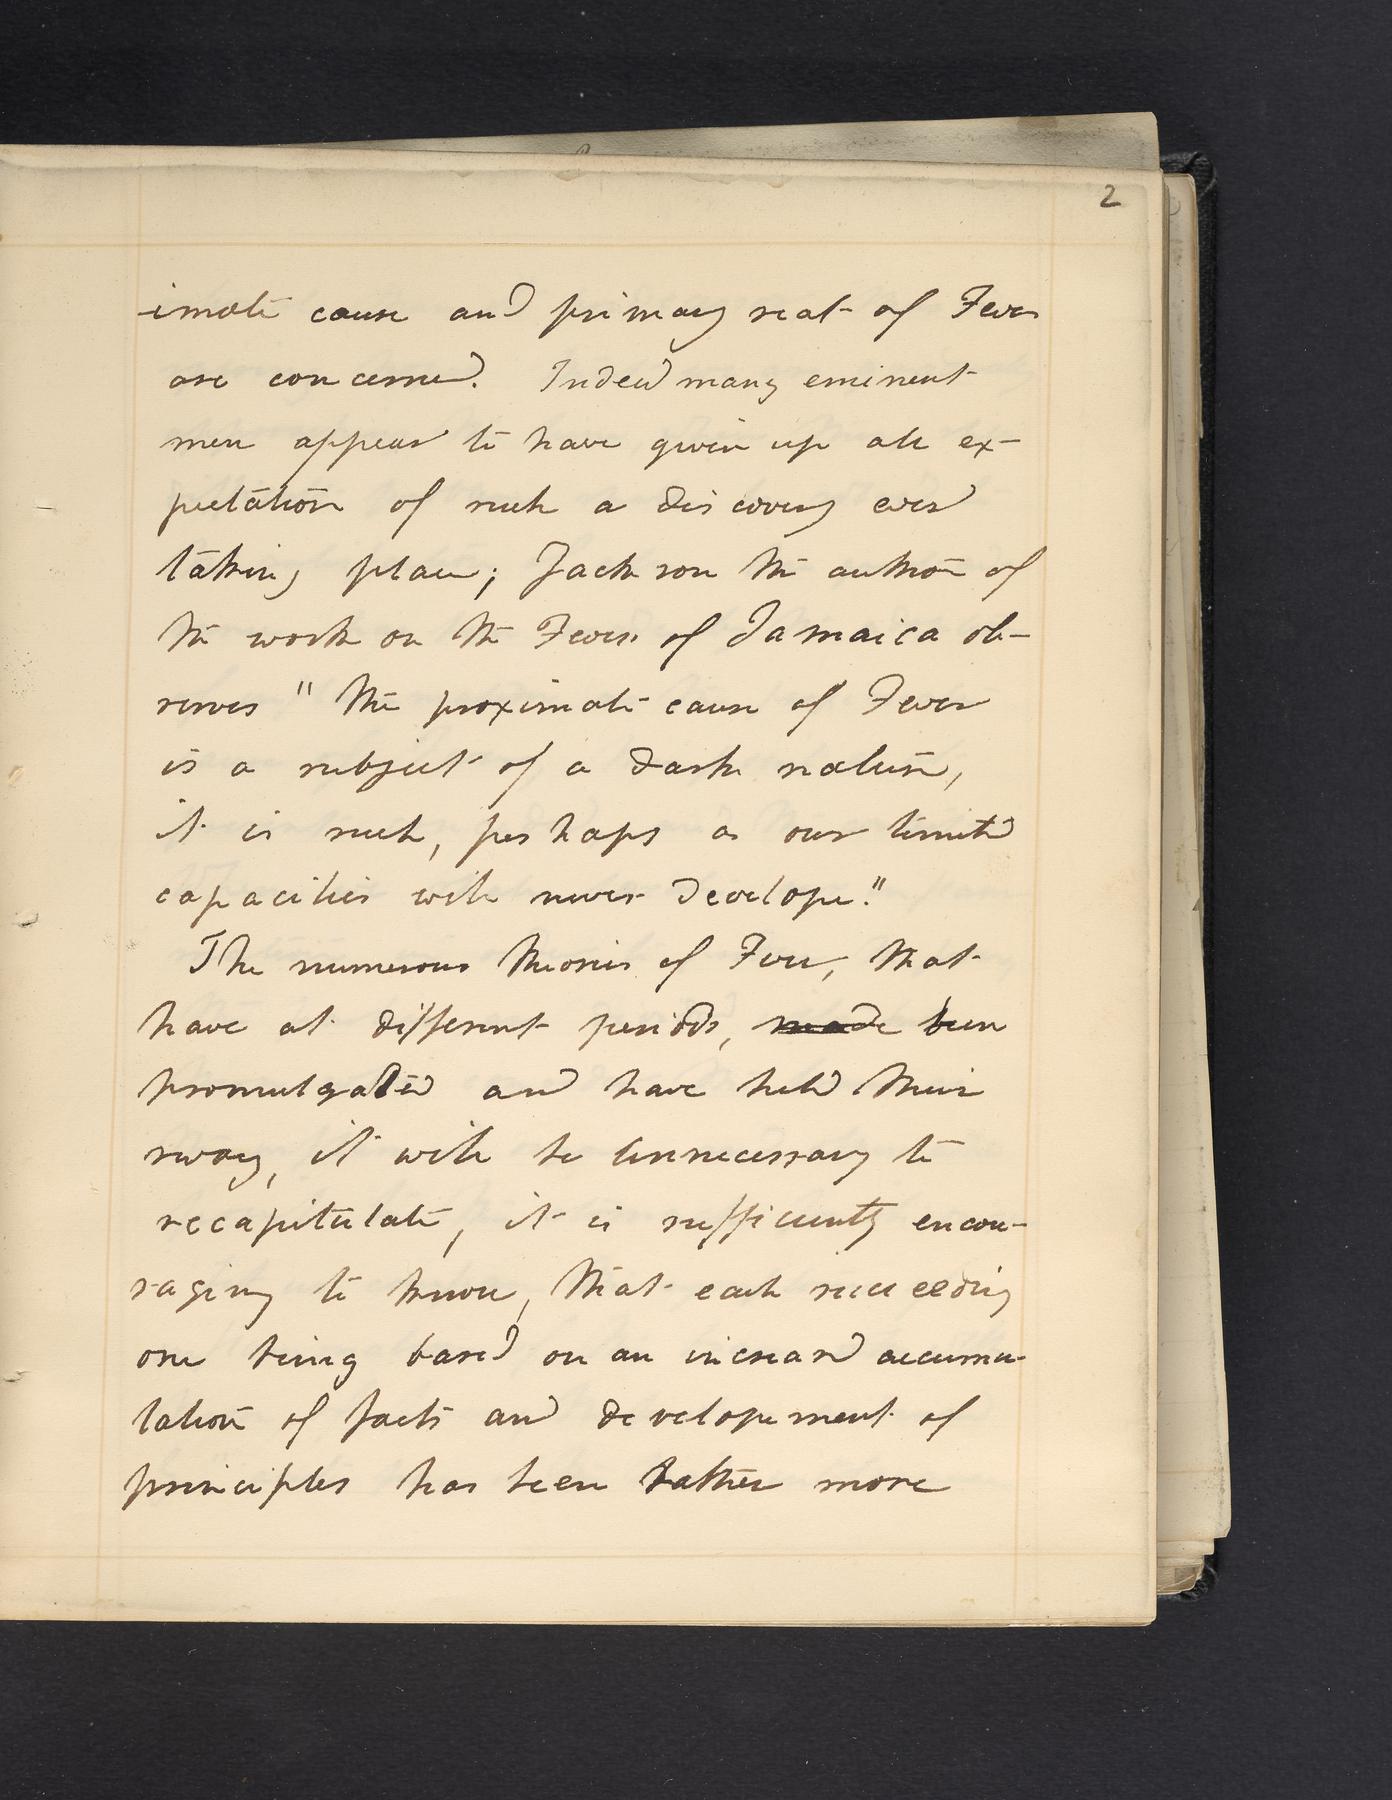 2
-imate cause and primary seat of Fever
are concerned. Indeed many eminent
men appear to have given up all ex-
pectation of such a discovery ever
taking place; Jackson the author of
the work on the Fevers of Jamaica ob-
serves " the proximate cause of Fever
is a subject of a dark nature,
it is such, perhaps as our limited
capacities will never develope."
The numerous theories of Fever, that
have at different periods, made been
promulgated and have held their
sway, it will be unnecessary to
recapitulate, it is sufficiently encou-
raging to know, that each succeeding
one being based on an increased accumu-
lation of facts and developement of
principles has been rather more